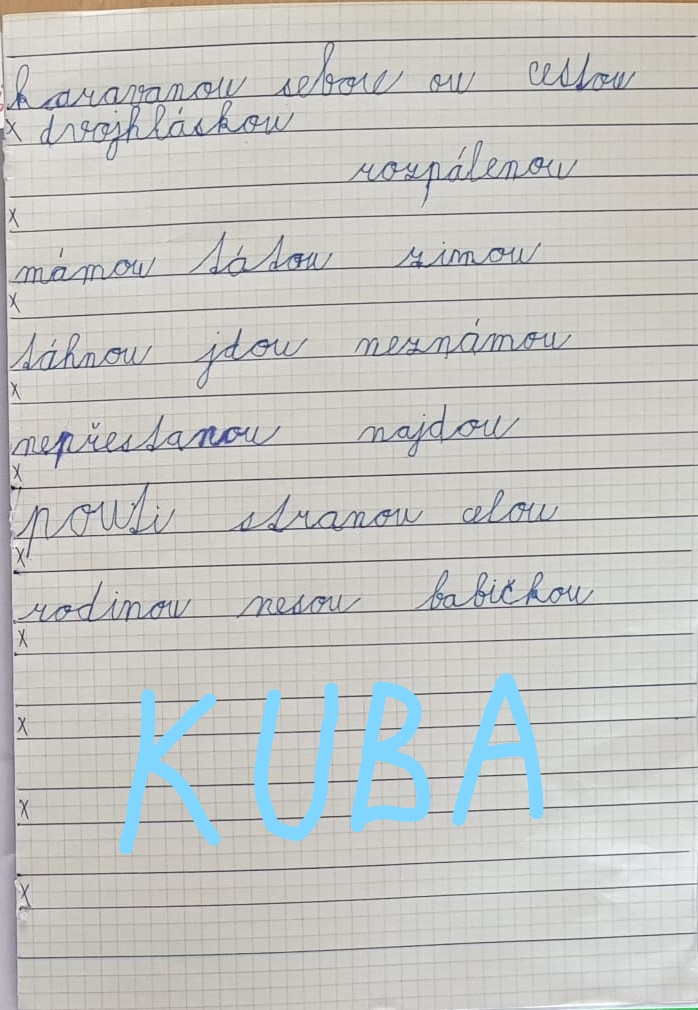 karavanou sebou ou cestou
x dvojhláskou
rozpálenou
x
mámou tátou zimou
x
táhnou jdou neznámou
x
nepřestanou najdou
x
poušti stranou celou
x
rodinou nesou babičkou
x
KUBA
x
x
x